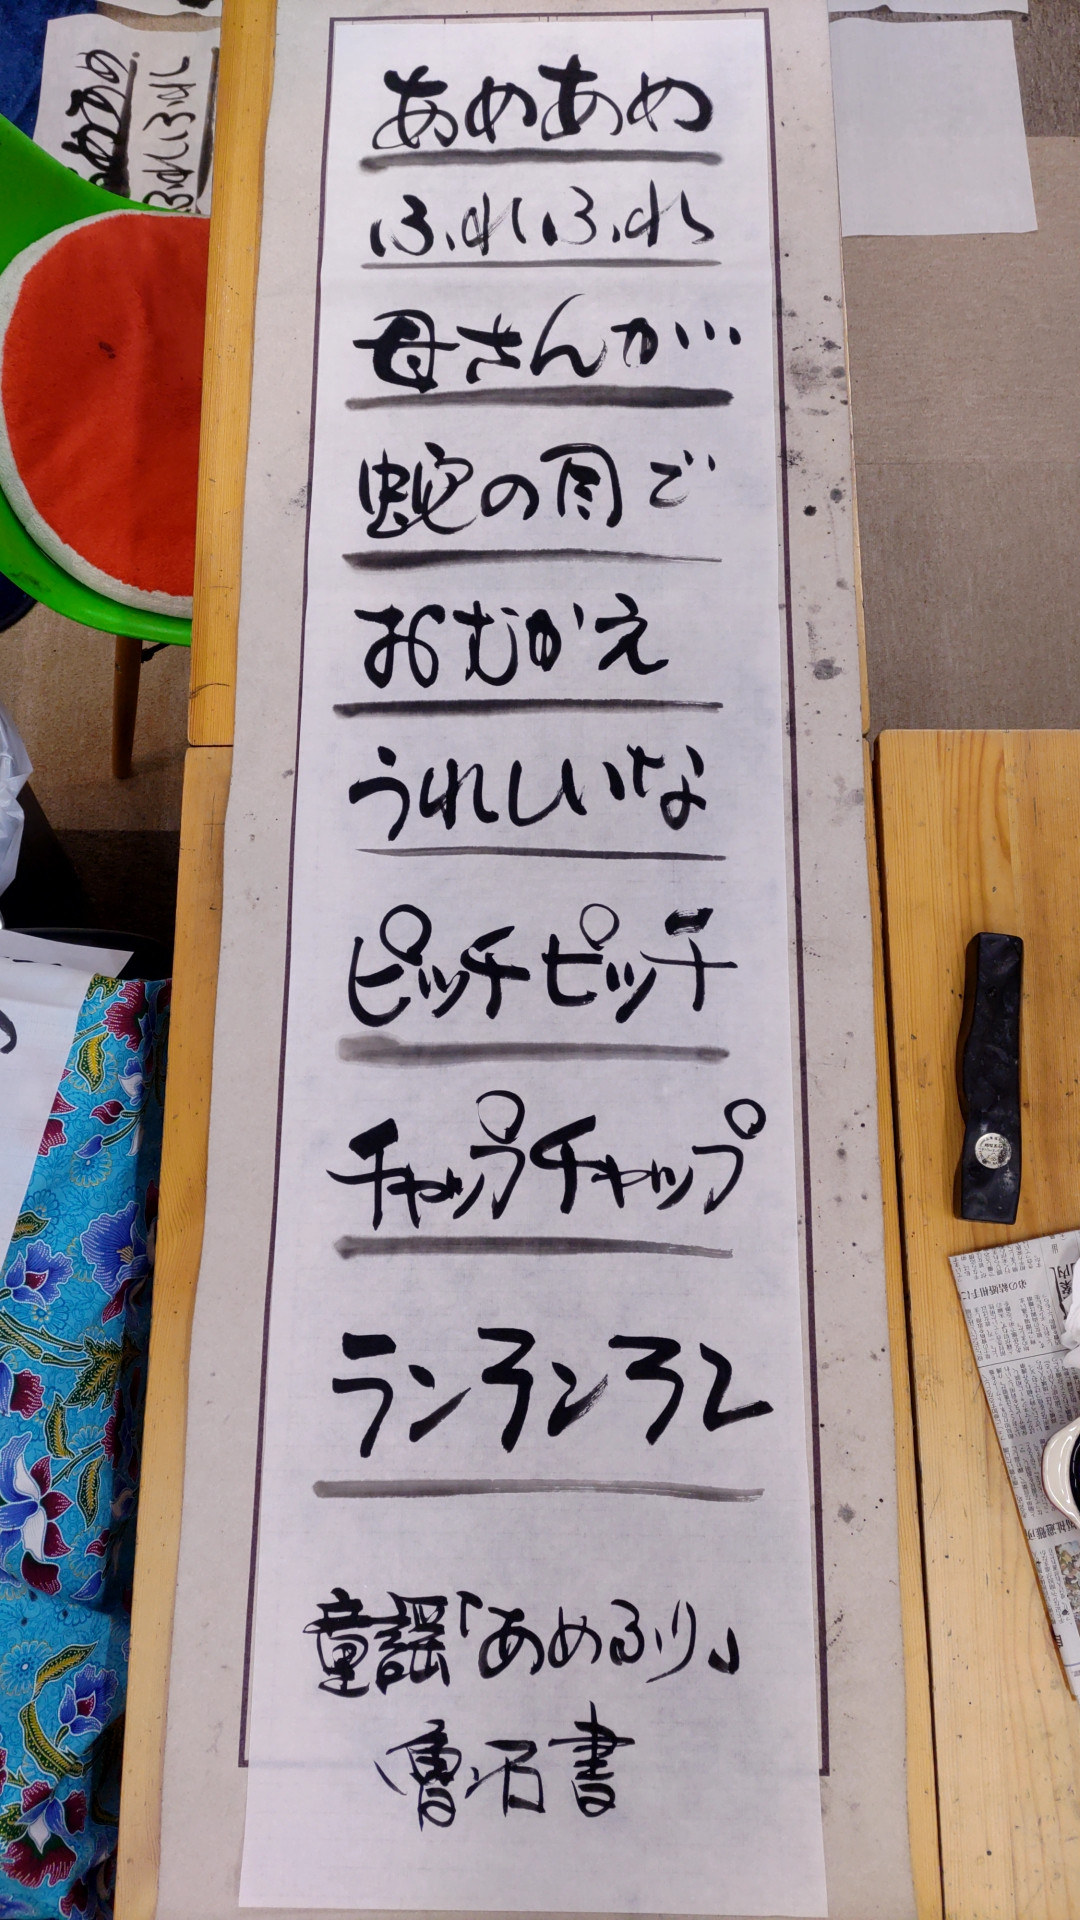 あめあめ
ふれふれ
母さんが…
蛇の目で
おむかえ
うれしいな
ピッチピッチ
チャップチャップ
ランランラン
童謡「あめふり」
書